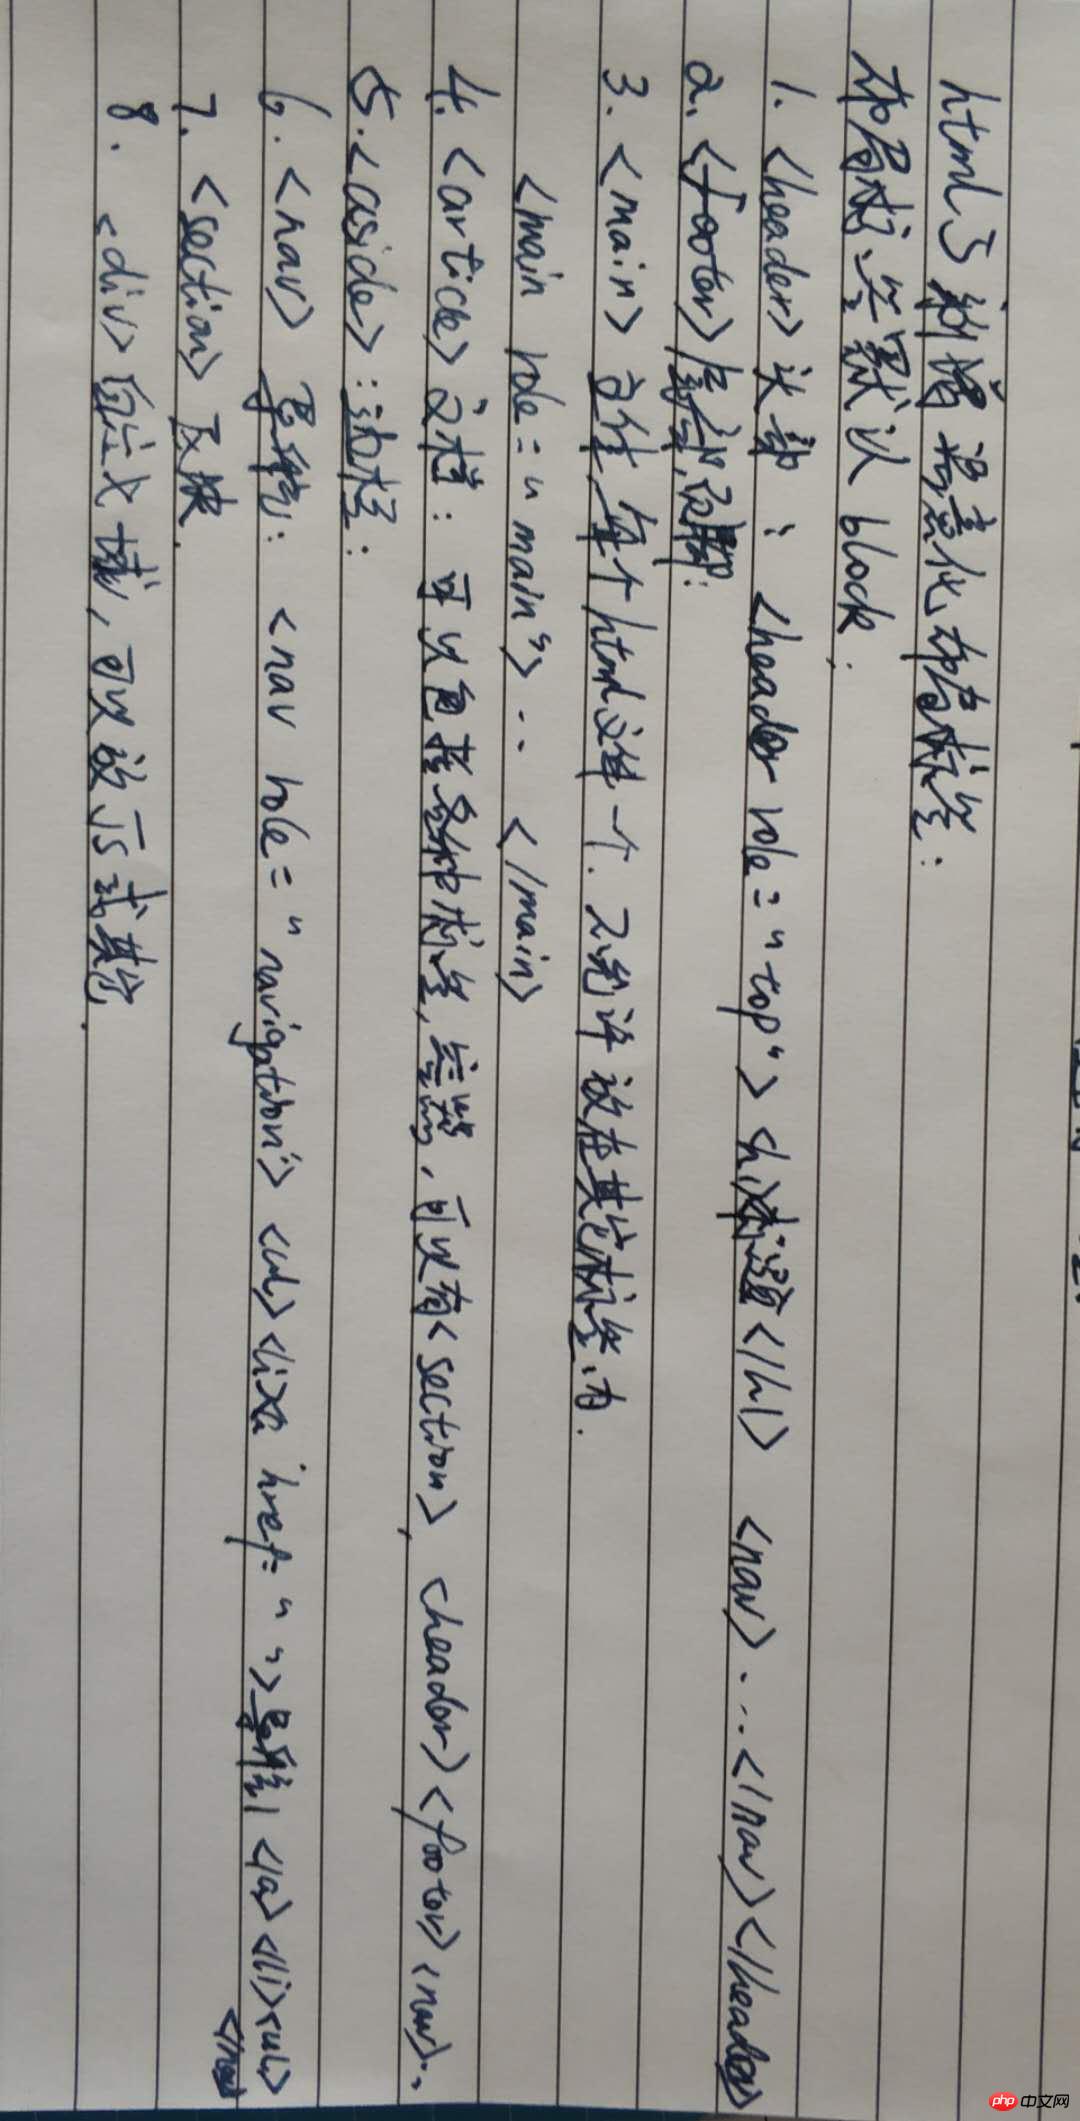 html5 新增语意化布局标签:
布局标签默认 block;
1. <header>头部: <header role="top"> <h1>标题</h1> <nav>...</nav></header>
2. <footer>尾部,页脚:
3. <main> 主体,每个html文件一个. 不允许放在其它标签内.
<main role="main">...</main>
4. <article>文档: 可以包括各种标签,容器,可以有<section>, <header><footer><nav>..
5. <aside>:边栏:
6. <nav> 导航: <nav role="navigation"> <ul><li><a href=" ">导航1</a></li><ul>
</nav>
7. <section> 区块.
8. <div>自定义域,可以放js或其它.
php 中文网